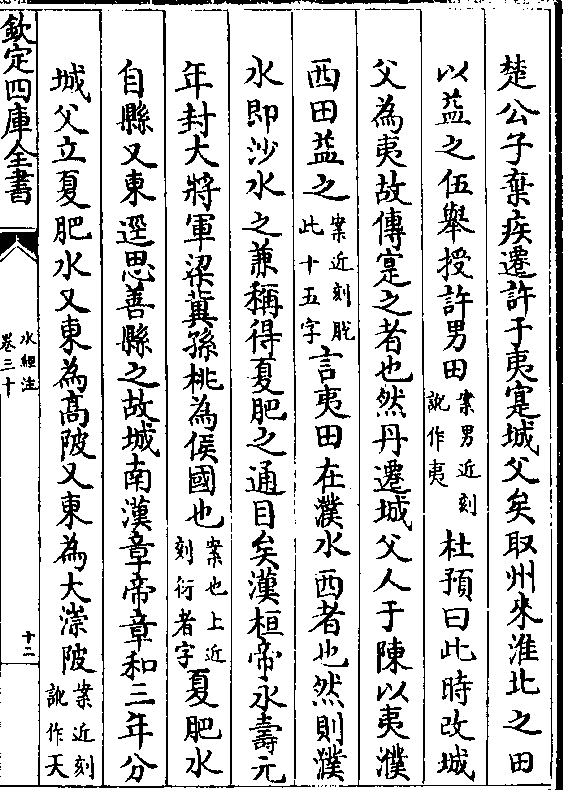 楚公子棄疾遷許于夷寔城父矣取州來淮北之田
以益之伍舉授許男田案男近刻訛作夷杜預曰此時改城
父為夷故傳寔之者也然丹遷城父人于陳以夷濮
西田益之案近刻脫此十五字言夷田在濮水西者也然則濮
水即沙水之兼稱得夏肥之通目矣漢桓帝永壽元
年封大將軍梁冀孫桃為侯國也案也上近刻衍者字夏肥水
自縣又東逕思善縣之故城南漢章帝章和三年分
城父立夏肥水又東為高陂又東為大漴陂案近刻訛作天
欽定四庫全書
水經注
卷三十
十二